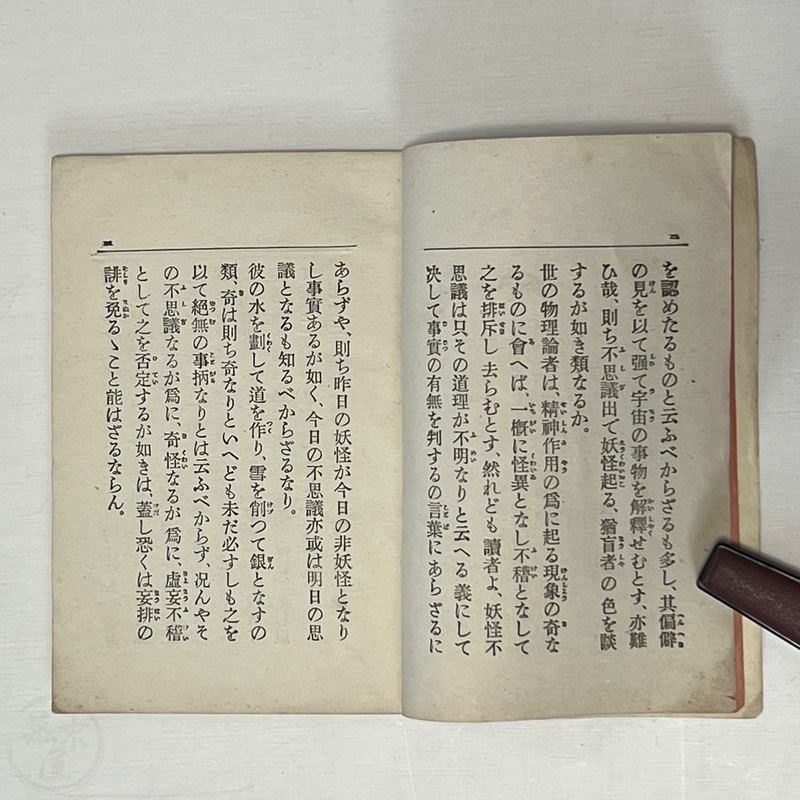 二
を認めたるものと云ふべからざるも多し、其偏僻
の見を以て强て宇宙の事物を解釋せむとす、亦難
ひ哉、則ち不思議出て妖怪起る、猶盲者の色を談
するが如き類なるか。
世の物理論者は、精神作用の爲に起る現象の奇な
るものに會へば、一槪に怪異となし不稽となして
之を排斥し去らむとす、然れども讀者よ、妖怪不
思議は只その道理が不明なりと云へる義にして
决して事實の有無を判するの言葉にあらざるに
三
あらずや、則ち昨日の妖怪が今日の非妖怪となり
し事實あるが如く、今日の不思議亦或は明日の思
議となるも知るべからざるなり。
彼の水を劃して道を作り、雪を削つて銀となすの
類、奇は則ち奇なりといへども未だ必ずしも之を
以て絕無の事柄なりとは云ふべからず、况んやそ
の不思議なるが爲に、奇怪なるが爲に、虛妄不稽
として之を否定するが如きは、蓋し恐くは妄排の
誹を免るゝこと能はざるならん。